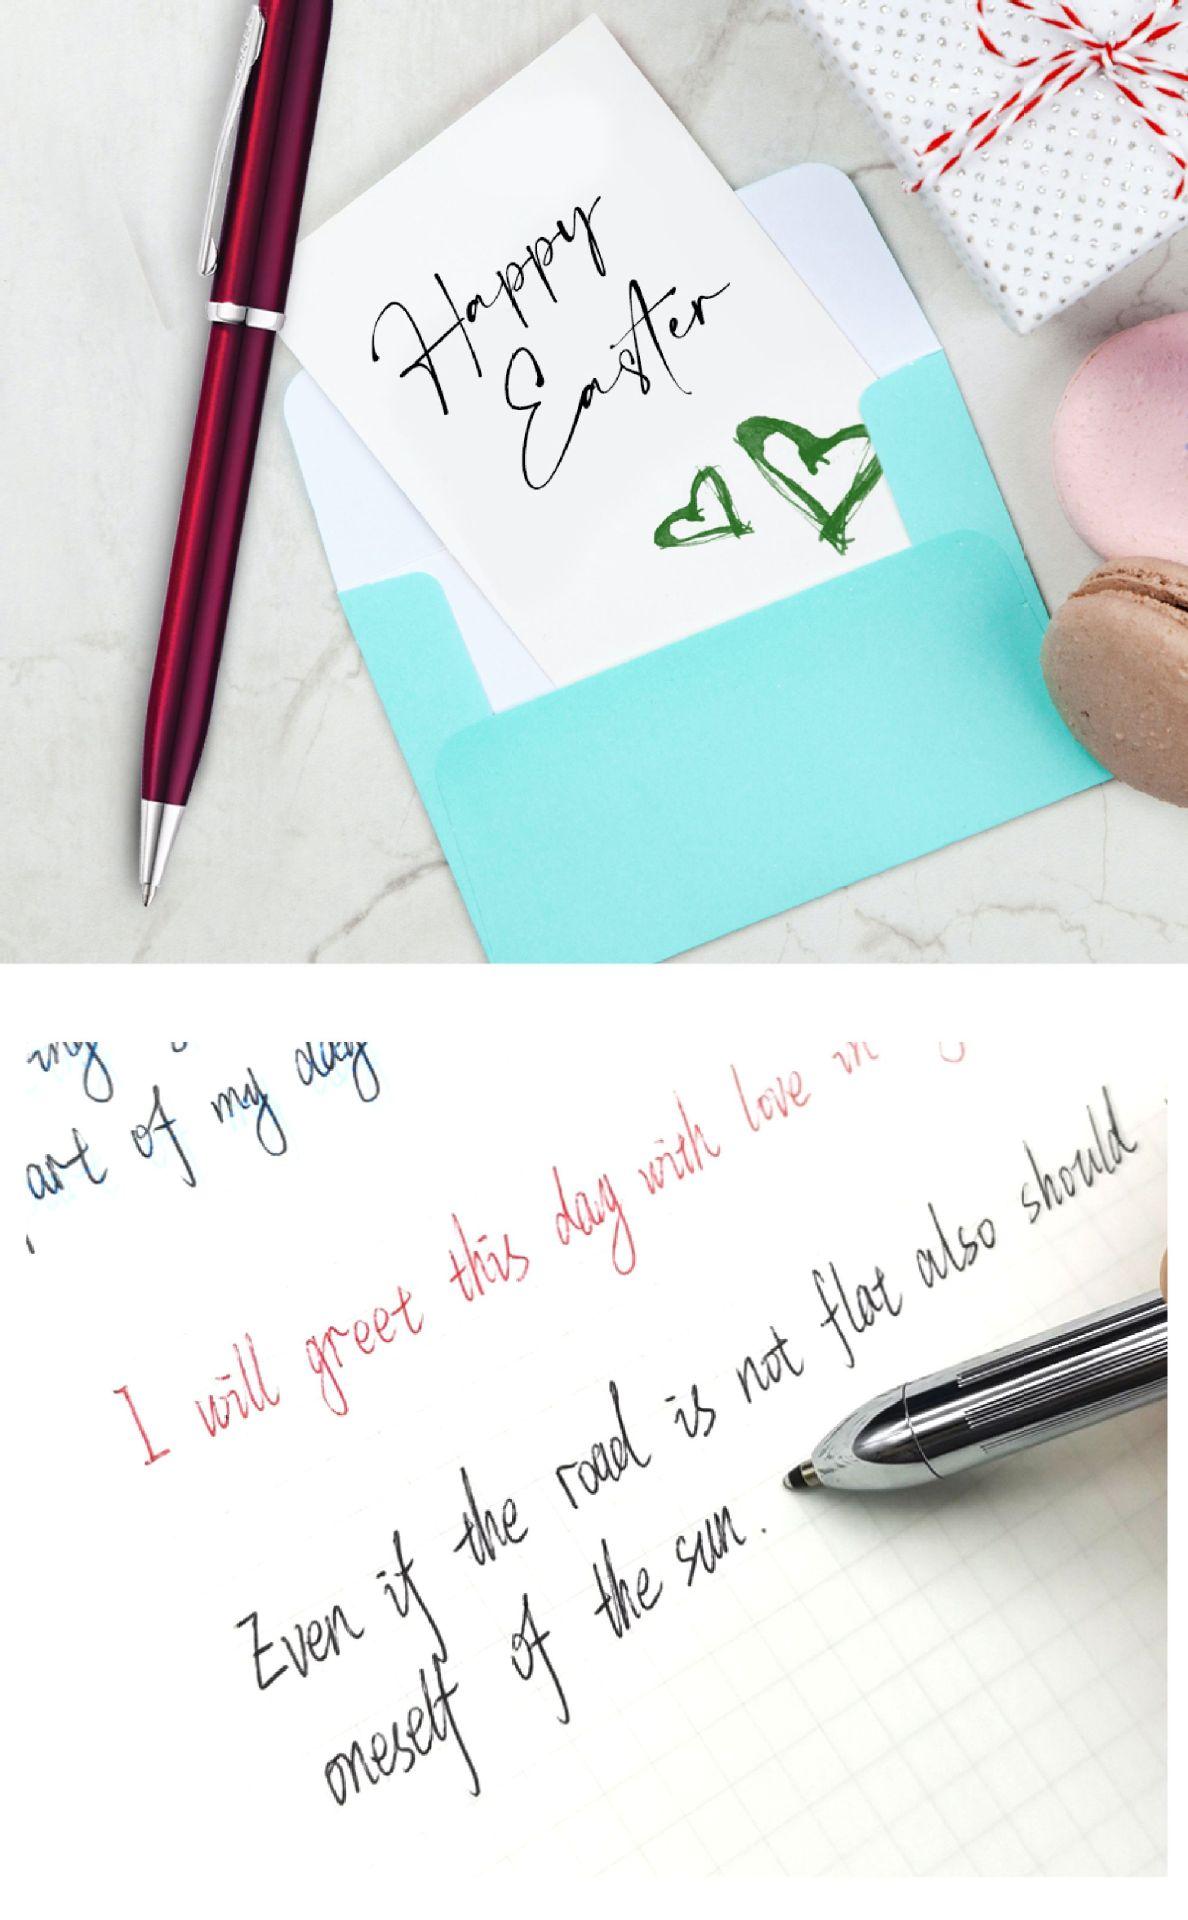 Happy
Easter
art of my day
I will greet this day with love in
Even if the road is not flat also should
oneself of the sun.